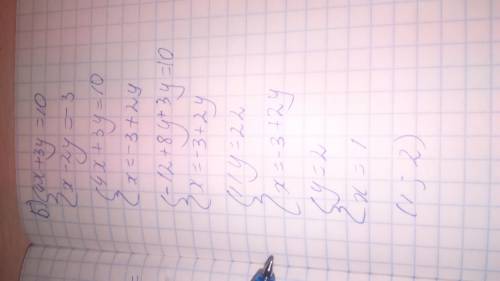 б) {4x+3y=10
{x-2y=-3
{4x+3y=10
{x=-3+2y
{-12+8y+3y=10
{x=-3+2y
{11y=22
{x=-3+2y
{y=2
{x=1
(1; 2)